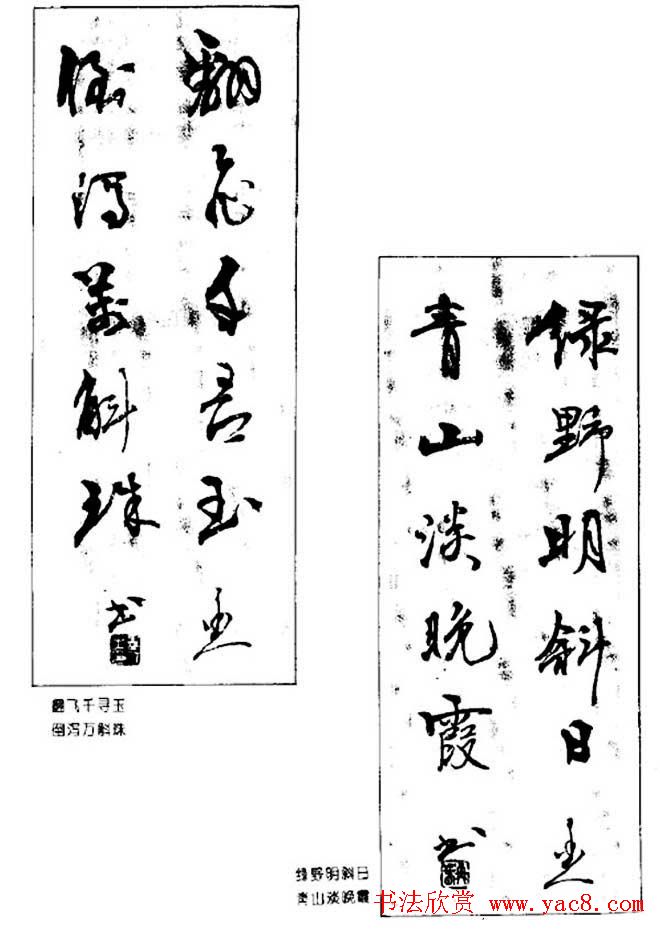 翻飞千寻玉
倒泻万斛珠
翻飞千寻玉
倒泻万斛珠
绿野明斜日
青山淡晚霞
书
绿野明斜日
青山淡晚霞
书法欣赏 www.yac8.com